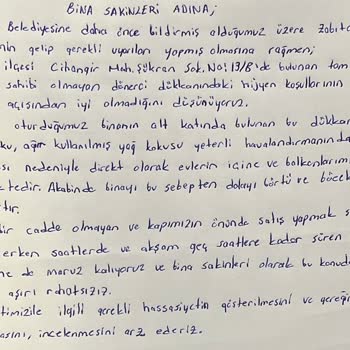 BİNA SAKİNLERİ ADINA;
Belediyesine daha önce bildirmiş olduğumuz üzere Zabıta
nin gelip gerekli uyarıları yapmış olmasına rağmen;
ilçesi Cihangir Mah. Şükran Sok. No: 13/B'de bulunan tam
sahibi olmayan dönerci dükkanındaki hijyen koşullarının
açısından iyi olmadığını düşünüyoruz.
oturduğumuz binanın alt katında bulunan bu dükkan
ku, ağır kullanılmış yağ kokusu yeterli havalandırmanında
sı nedeniyle direkt olarak evlerin içine ve balkonlarımı
ktedir. Akabinde binayı bu sebepten dolayı börtü ve böcek
tır.
bir cadde olmayan ve kapımızın önünde satış yapmak s
erken saatlerde ve akşam geç saatlere kadar süren
ne de maruz kalıyoruz ve bina sakinleri olarak bu konuda
aşırı rahatsızız.
timizle ilgili gerekli hassasiyetin gösterilmesini ve gereğin
asını, incelenmesini arz ederiz.